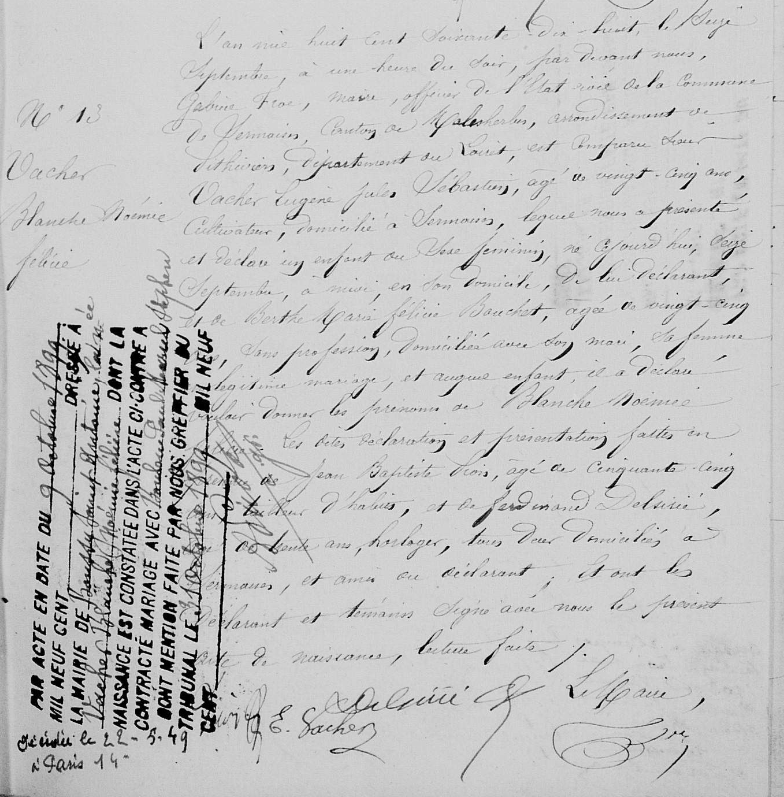 N° 13
Vacher
Blanche Noémie
félicie
L'an mil huit cent soixante-dix-huit, le Seize
Septembre, à une heure du soir, par devant nous,
maire, officier de l'Etat civil de la Commune
de Sermaises, Canton de Malesherbes, arrondissement de
Pithiviers, département du Loiret, est comparu Sieur
Vacher Eugène Jules Sébastien, âgé de vingt-cinq ans,
Cultivateur, domicilié à Sermaises, lequel nous a présenté
et déclaré un enfant du Sexe féminin, né ce jourd'hui, Seize
Septembre, à midi, en son domicile, de lui déclarant,
et de Berthe Marie félicie Bouchet, agée de vingt-cinq
ans, sans profession, domiciliée avec son mari, sa femme
légitime mariage, et auquel enfant, il a déclaré
vouloir donner les prénoms de Blanche Noémie
Les dites déclaration et présentation faites en
de Jean Baptiste âgé de Cinquante-cinq
d'habits, et de ferdinand Delsirié,
de trente ans, horloger, tous deux domiciliés à
Sermaises, et amis du déclarant; et ont les
déclarant et témoins signé avec nous le présent
acte de naissance, lecture faite /.
Le Maire,
E. Vacher
PAR ACTE EN DATE DU 9 Octobre 1899
MIL NEUF CENT DRESSÉ À
LA MAIRIE DE
Vacher Blanche Noémie félicie DONT LA
NAISSANCE EST CONSTATÉE DANS L'ACTE CI-CONTRE A
CONTRACTÉ MARIAGE AVEC
DONT MENTION FAITE PAR NOUS GREFFIER DU
TRIBUNAL LE 31 Octobre 1899 MIL NEUF
CENT
Décédée le 22-5-49
à Paris 14e